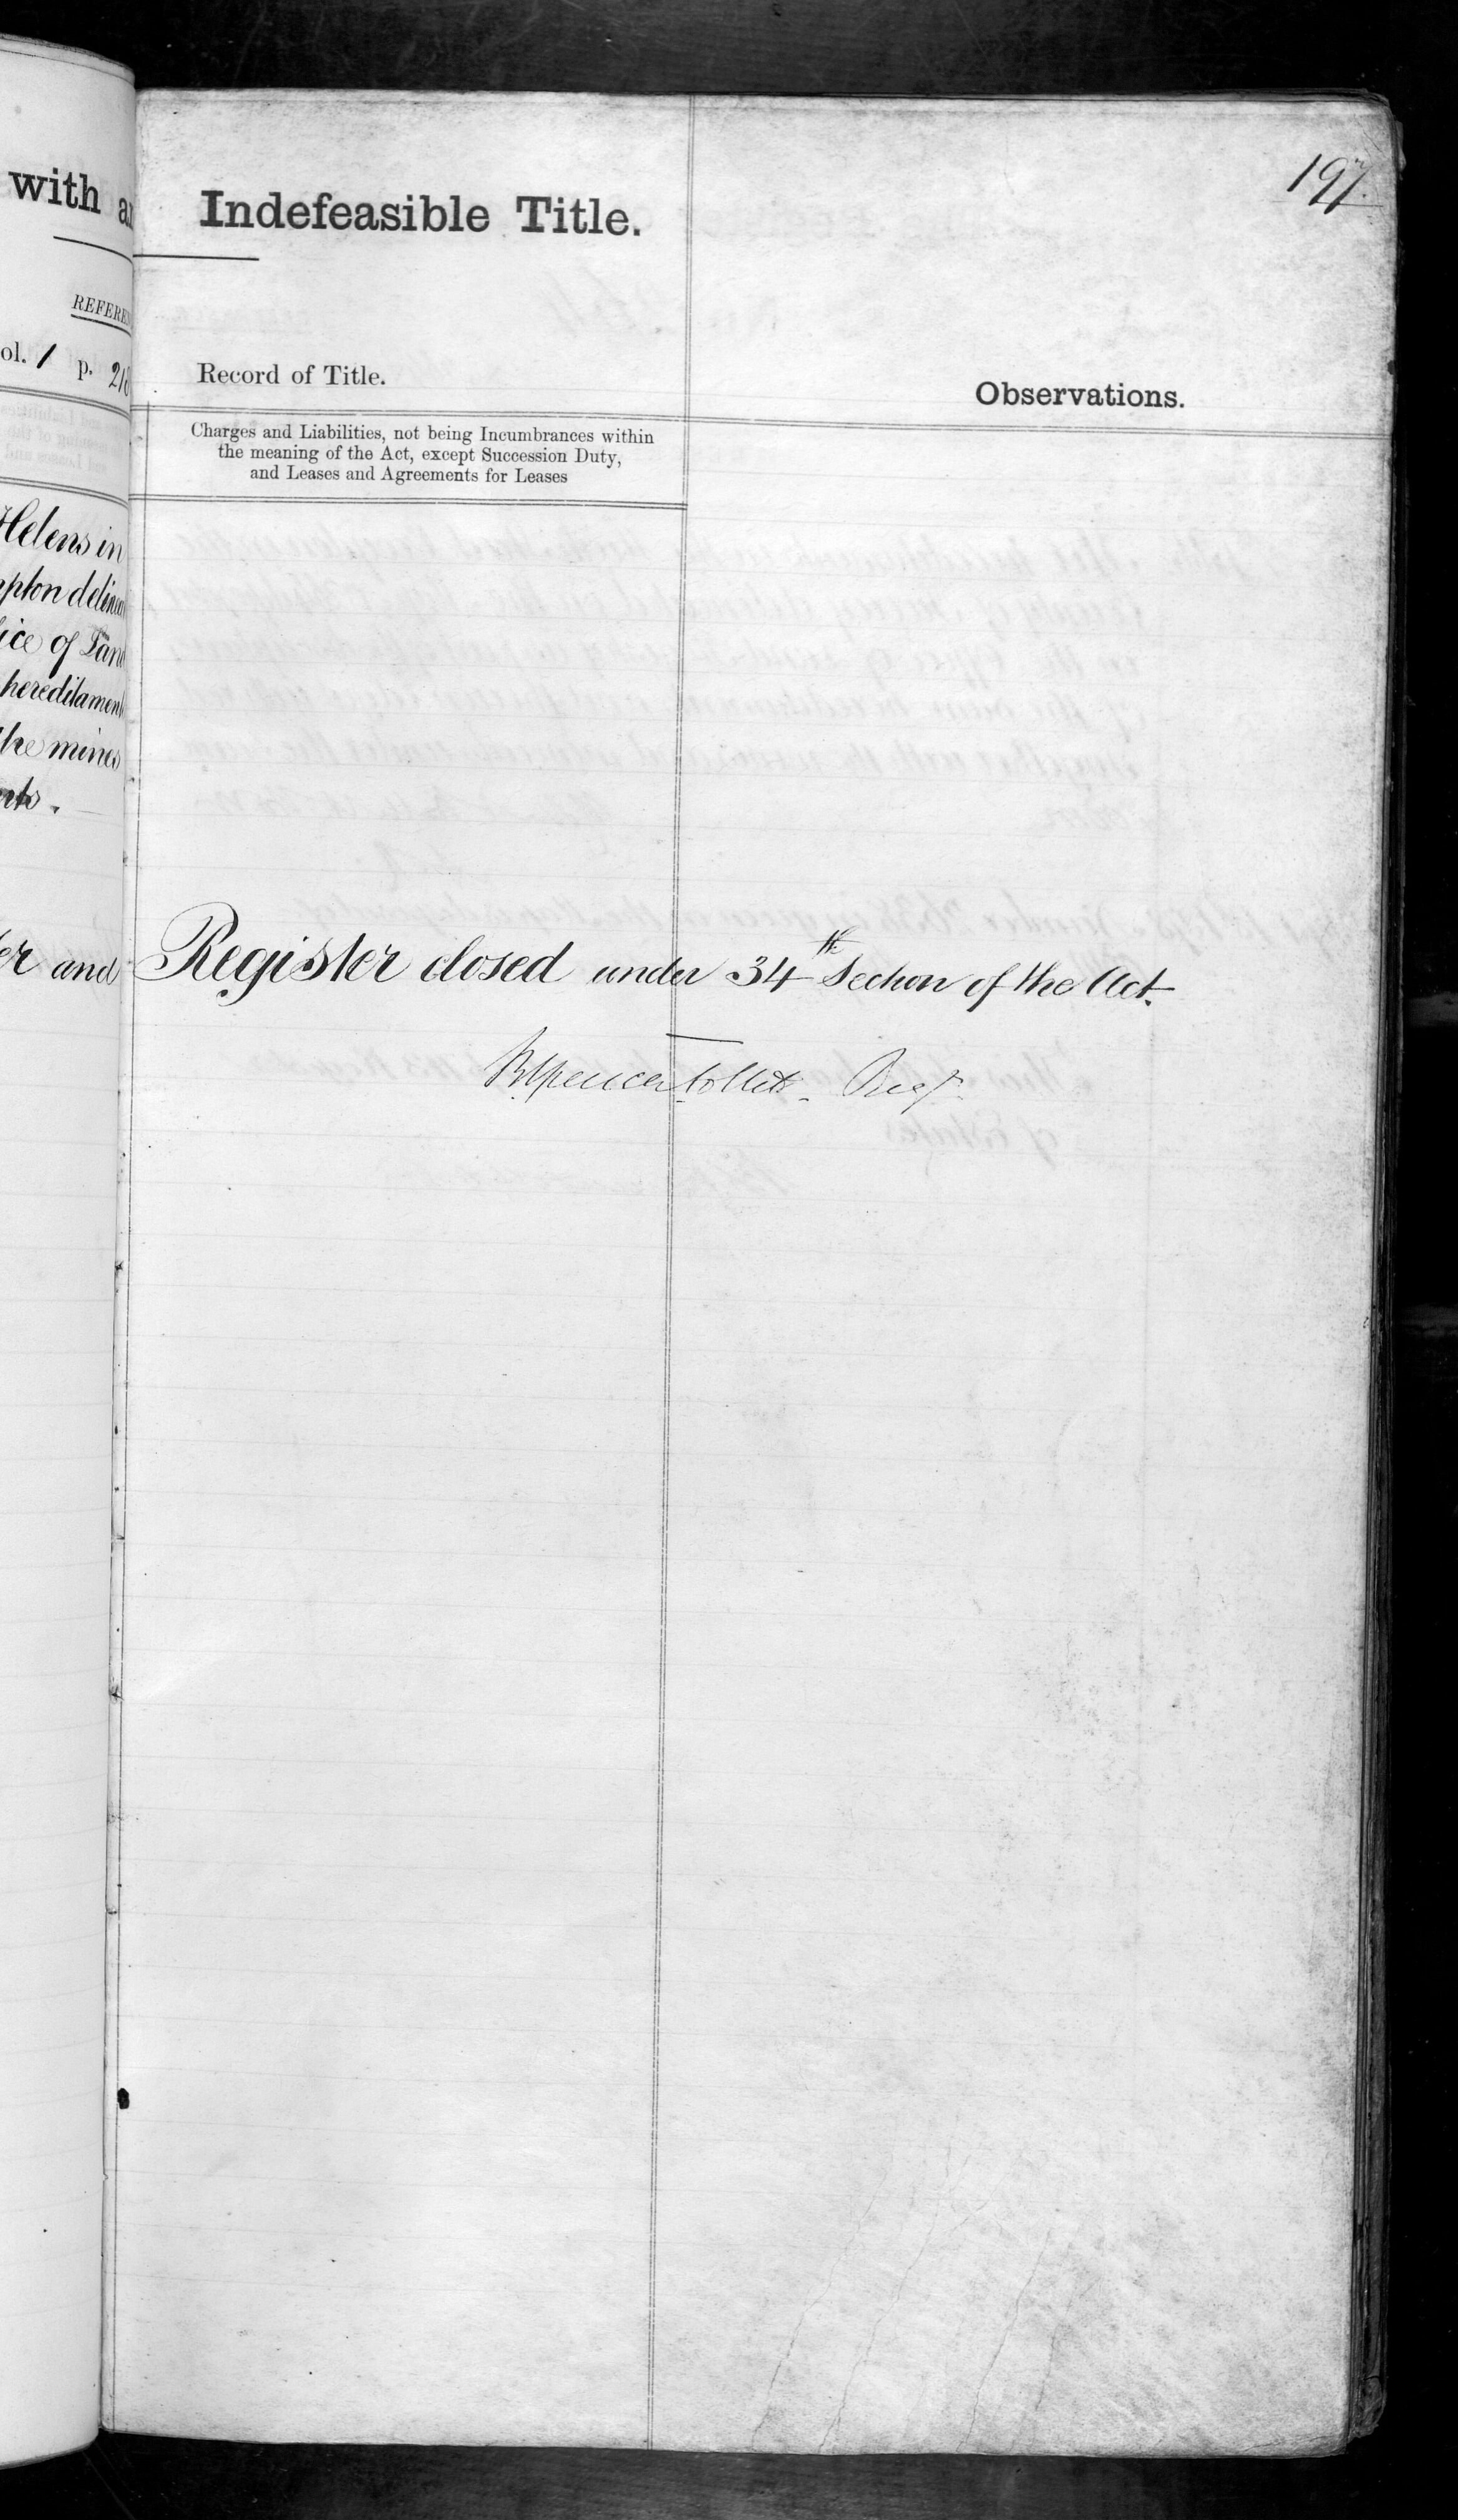 with
REFEREN
ol. 1 p. 218
Helens in
pton delinea
ice of Land
hereditament
the mines
nts.
er and
197.
Indefeasible Title.
Record of Title.
Observations.
Charges and Liabilities, not being Incumbrances within
the meaning of the Act, except Succession Duty,
and Leases and Agreements for Leases
Register closed under 34th Section of the Act.
Spencer Follett. Regr.